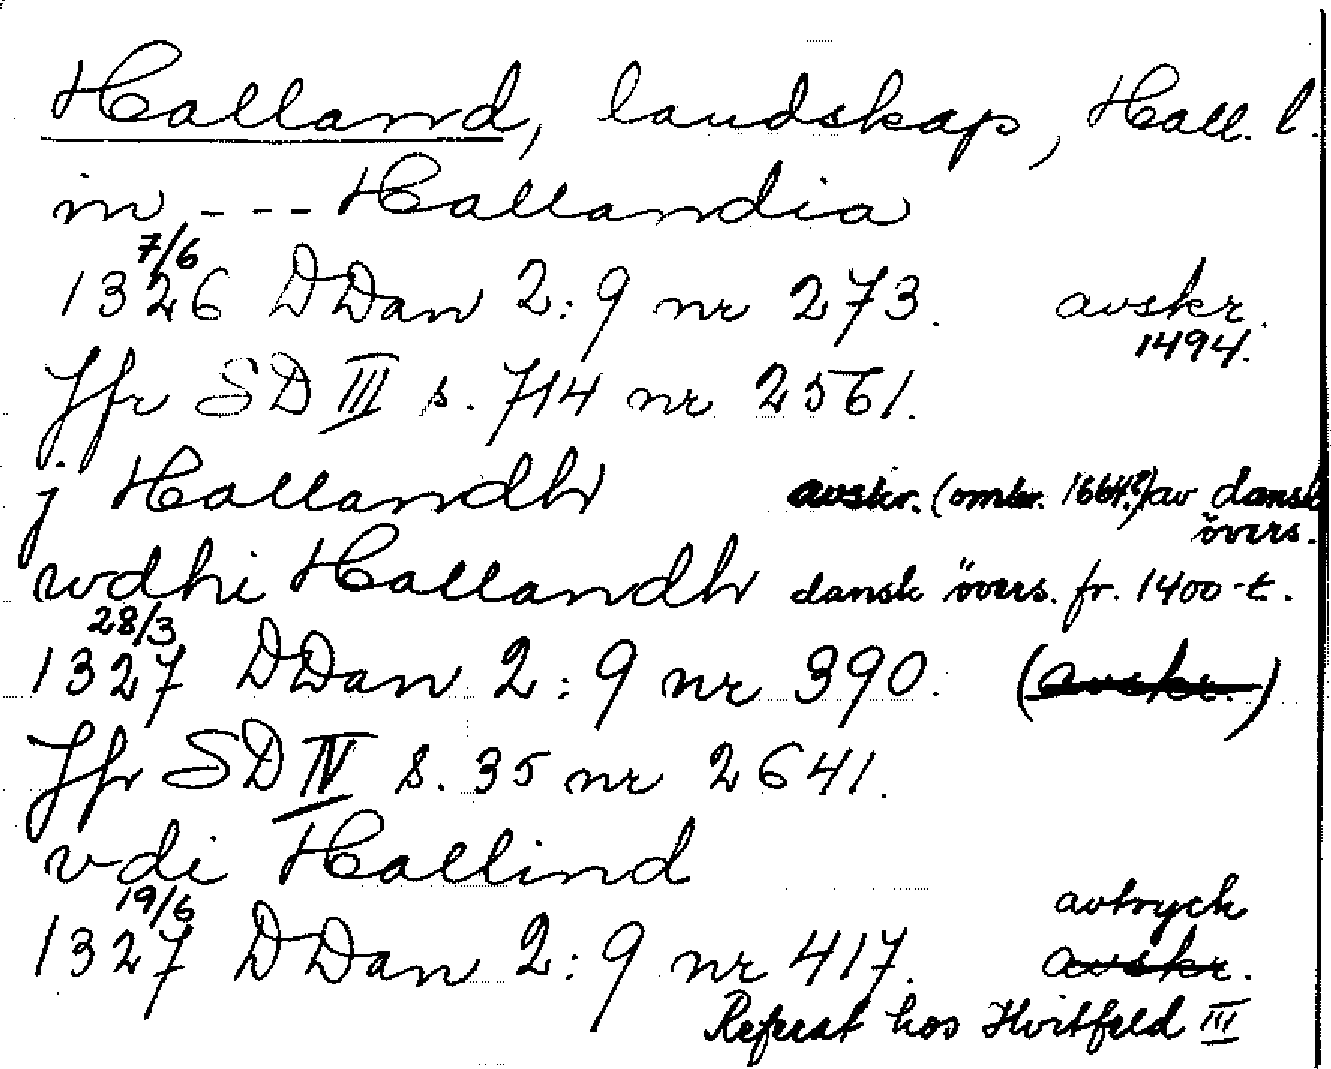 Halland, landskap, Hall. l.
in --- Hallandia
7/6
1326 DDan 2:9 nr 273. avskr.
1494.
Jfr SD III s. 714 nr 2561.
j Hallandh avskr. (omkr. 1664?) av dansk
övers.
wdhi Hallandh dansk övers. fr. 1400-t.
28/3
1327 DDan 2:9 nr 390. (avskr.)
Jfr SD IV s. 35 nr 2641.
vdi Hallind
19/6 avtryck
1327 DDan 2:9 nr 417. avskr.
Referat hos Hvitfeld III